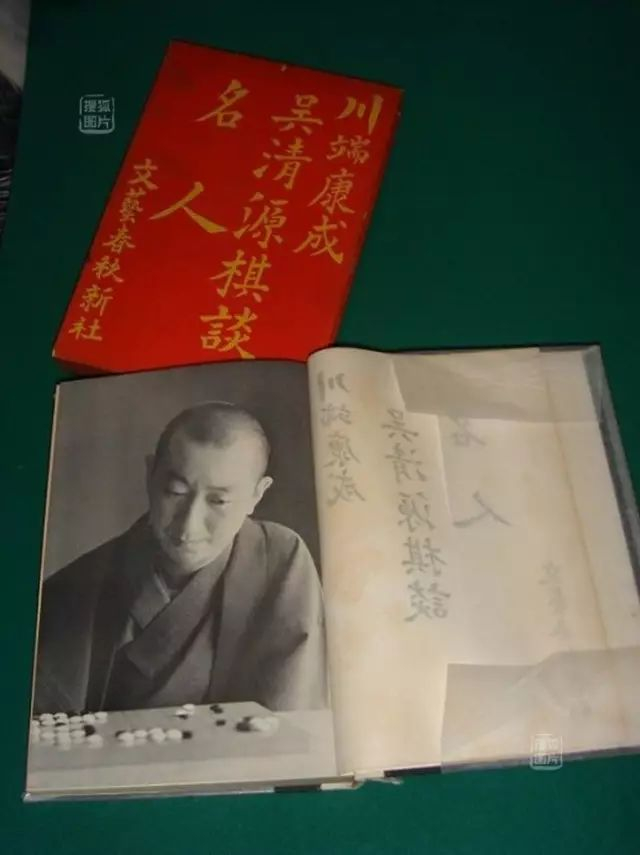 搜狐
图片
川端康成
呉清源棋談
名人
文藝春秋新社
川端康成
呉清源棋談
名人
搜狐
图片